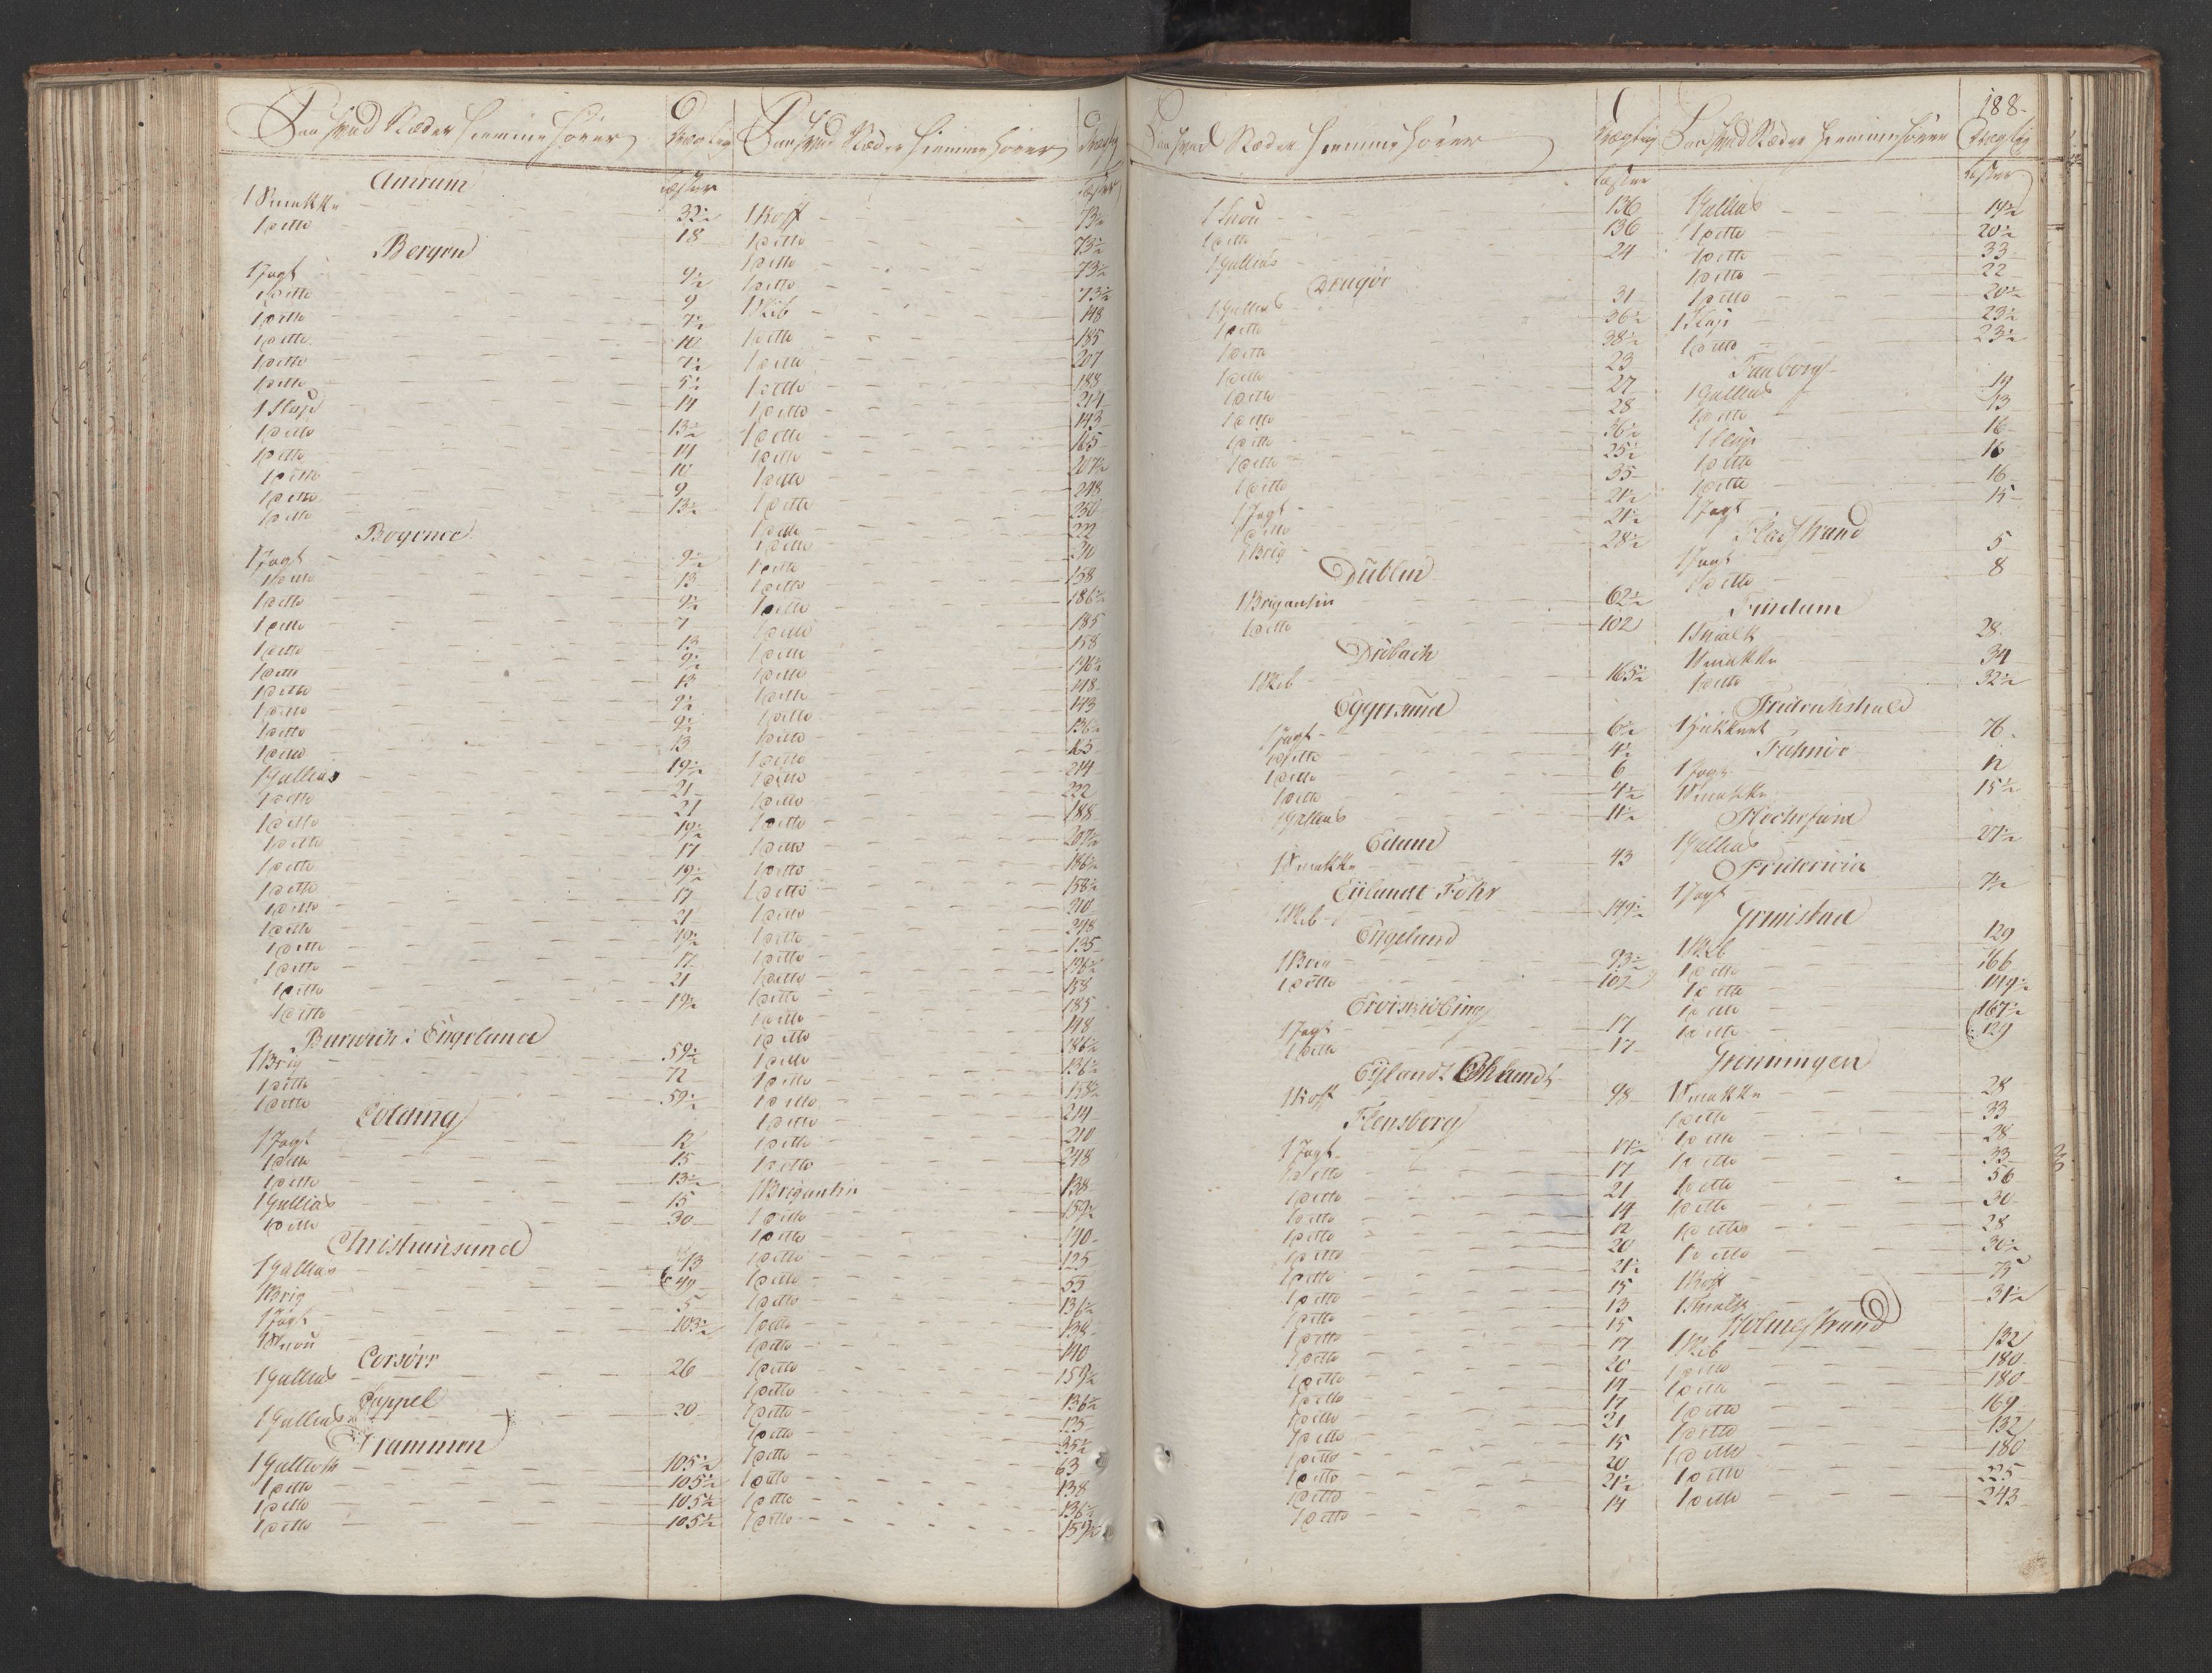 Hvad Stæder Hiemme hører
Drægtig
Læster
Amrum
1 Smakke 32½
1 ditto 18
Bergen
1 Jagt 9½
1 ditto 9
1 ditto 7½
1 ditto 10
1 ditto 7½
1 ditto 5½
1 Slup 14
1 ditto 13½
1 ditto 14
1 ditto 10
1 ditto 9
1 ditto 13½
Bogense
1 Jagt 9½
1 ditto 13
1 ditto 9½
1 ditto 7
1 ditto 13
1 ditto 9½
1 ditto 13
1 ditto 9½
1 ditto 9½
1 ditto 13
1 Gallias 19½
1 ditto 21
1 ditto 21
1 ditto 19½
1 ditto 17
1 ditto 19½
1 ditto 17
1 ditto 21
1 ditto 19½
1 ditto 17
1 ditto 21
1 ditto 19½
Barwich i Engeland
1 Brig 59½
1 ditto 72
1 ditto 59½
Colding
1 Jagt 12
1 ditto 15
1 ditto 13½
1 Gallias 15
1 ditto 30
Christiansand
1 Gallias 13
1 Brig 49
1 Jagt 5
1 Snau 103½
Corsöer
1 Gallias 26
Cappel
1 Gallias 20
Drammen
1 Galleoth 105½
1 ditto 105½
1 ditto 105½
1 ditto 105½
Hvad Stæder Hiemme hører
Læster
1 Koff 73½
1 ditto 73½
1 ditto 73½
1 ditto 73½
1 Skib 148
1 ditto 185
1 ditto 207
1 ditto 188
1 ditto 214
1 ditto 143
1 ditto 165
1 ditto 207½
1 ditto 248
1 ditto 250
1 ditto 222
1 ditto 210
1 ditto 158
1 ditto 186½
1 ditto 185
1 ditto 158
1 ditto 196½
1 ditto 148
1 ditto 143
1 ditto 136½
1 ditto 165
1 ditto 214
1 ditto 222
1 ditto 188
1 ditto 207½
1 ditto 186½
1 ditto 158½
1 ditto 210
1 ditto 248
1 ditto 135
1 ditto 196½
1 ditto 158
1 ditto 185
1 ditto 148
1 ditto 186½
1 ditto 136½
1 ditto 158½
1 ditto 214
1 ditto 210
1 ditto 248
1 Brigantin 138
1 ditto 159½
1 ditto 140
1 ditto 125
1 ditto 55
1 ditto 136½
1 ditto 138
1 ditto 140
1 ditto 159½
1 ditto 136½
1 ditto 125
1 ditto 35½
1 ditto 63
1 ditto 138
1 ditto 136½
1 ditto 159½
Hvad Stæder Hiemme hører
Drægtig
Læster
1 Snau 136
1 ditto 136
1 Gallias 24
Dragöe
1 Gallias 31
1 ditto 36½
1 ditto 38½
1 ditto 23
1 ditto 27
1 ditto 28
1 ditto 36½
1 ditto 25½
1 ditto 35
1 Jagt 21½
1 ditto 21½
1 Brig 28½
Dublin
1 Brigantin 62½
1 ditto 102
Dröbach
1 Skib 165½
Eggersund
1 Jagt 6½
1 ditto 4½
1 ditto 6
1 ditto 4½
1 Gallias 11½
Edam
1 Smakke 43
Eÿlandt Föhr
1 Skib 149½
Engeland
1 Brig 93½
1 ditto 102
Eröiskiöbing
1 Jagt 17
1 ditto 17
Eÿlandt
1 Koff 98
Flensborg
1 Jagt 11½
1 ditto 17
1 ditto 21
1 ditto 14
1 ditto 12
1 ditto 20
1 ditto 21½
1 ditto 15
1 ditto 13
1 ditto 15
1 ditto 17
1 ditto 20
1 ditto 14
1 ditto 17
1 ditto 21
1 ditto 15
1 ditto 20
1 ditto 21½
1 ditto 14
188
Hvad Stæder Hiemme hører
Drægtig
Læster
1 Gallias 19½
1 ditto 20½
1 ditto 33
1 ditto 22
1 ditto 20½
1 Slup 23½
1 ditto 23½
Faaborg
1 Gallias 19
1 ditto 13
1 Slup 16
1 ditto 16
1 ditto 16
1 Jagt 15
Fladstrand
1 Jagt 5
1 ditto 8
1 Smakk 28
1 Smakke 34
1 ditto 32½
Friderichshald
1 Hukkert 76
Fahnöe
1 Jagt 12
1 Smakke 15½
1 Gallias 27½
Fridericia
1 Jagt 7½
Grimstad
1 Skib 129
1 ditto 166
1 ditto 149½
1 ditto 167½
1 ditto 129
Grönningen
1 Smakke 28
1 ditto 33
1 ditto 28
1 ditto 33
1 ditto 56
1 ditto 30
1 ditto 28
1 ditto 30½
1 Koff 75
1 Smakk 31½
Holmestrand
1 Skib 132
1 ditto 180
1 ditto 180
1 ditto 169
1 ditto 132
1 ditto 180
1 ditto 225
1 ditto 243